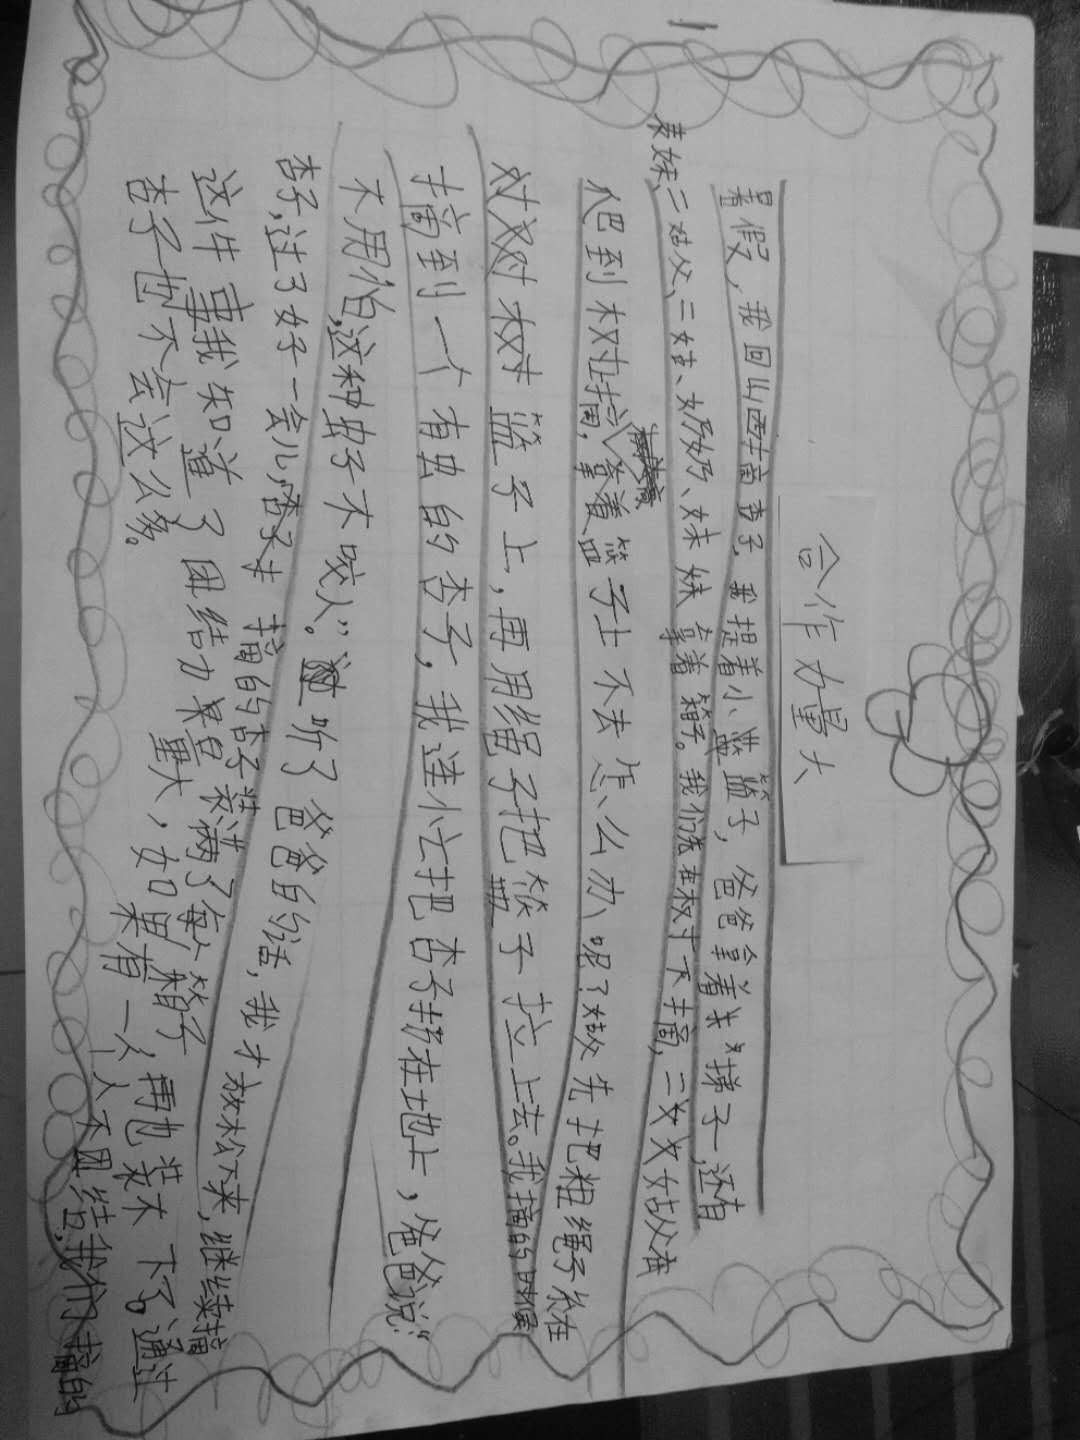 合作力量大
暑假,我回山西摘杏子,我提着小篮子,爸爸拿着梯子,还有
表妹、二姑父、三姑、奶奶、妹妹拿着箱子。我们先在树下摘,二姑父在
爬到树杈摘,拿着篮子上不去怎么办呢?先把粗绳子系在
树杈对篮子上,再用绳子把篮子拉上去。我摘的时候
摘到一个有虫的杏子,我连忙把杏子扔在地上,爸爸说:“
不用怕,这种虫子不咬人。”听了爸爸的话,我才放松下来,继续摘
杏子,过了好一会儿,杏子摘的杏子装满了每个箱子,再也装不下了。通过
这件事我知道了团结力量大,如果有一人不团结,我们摘的
杏子也不会这么多。